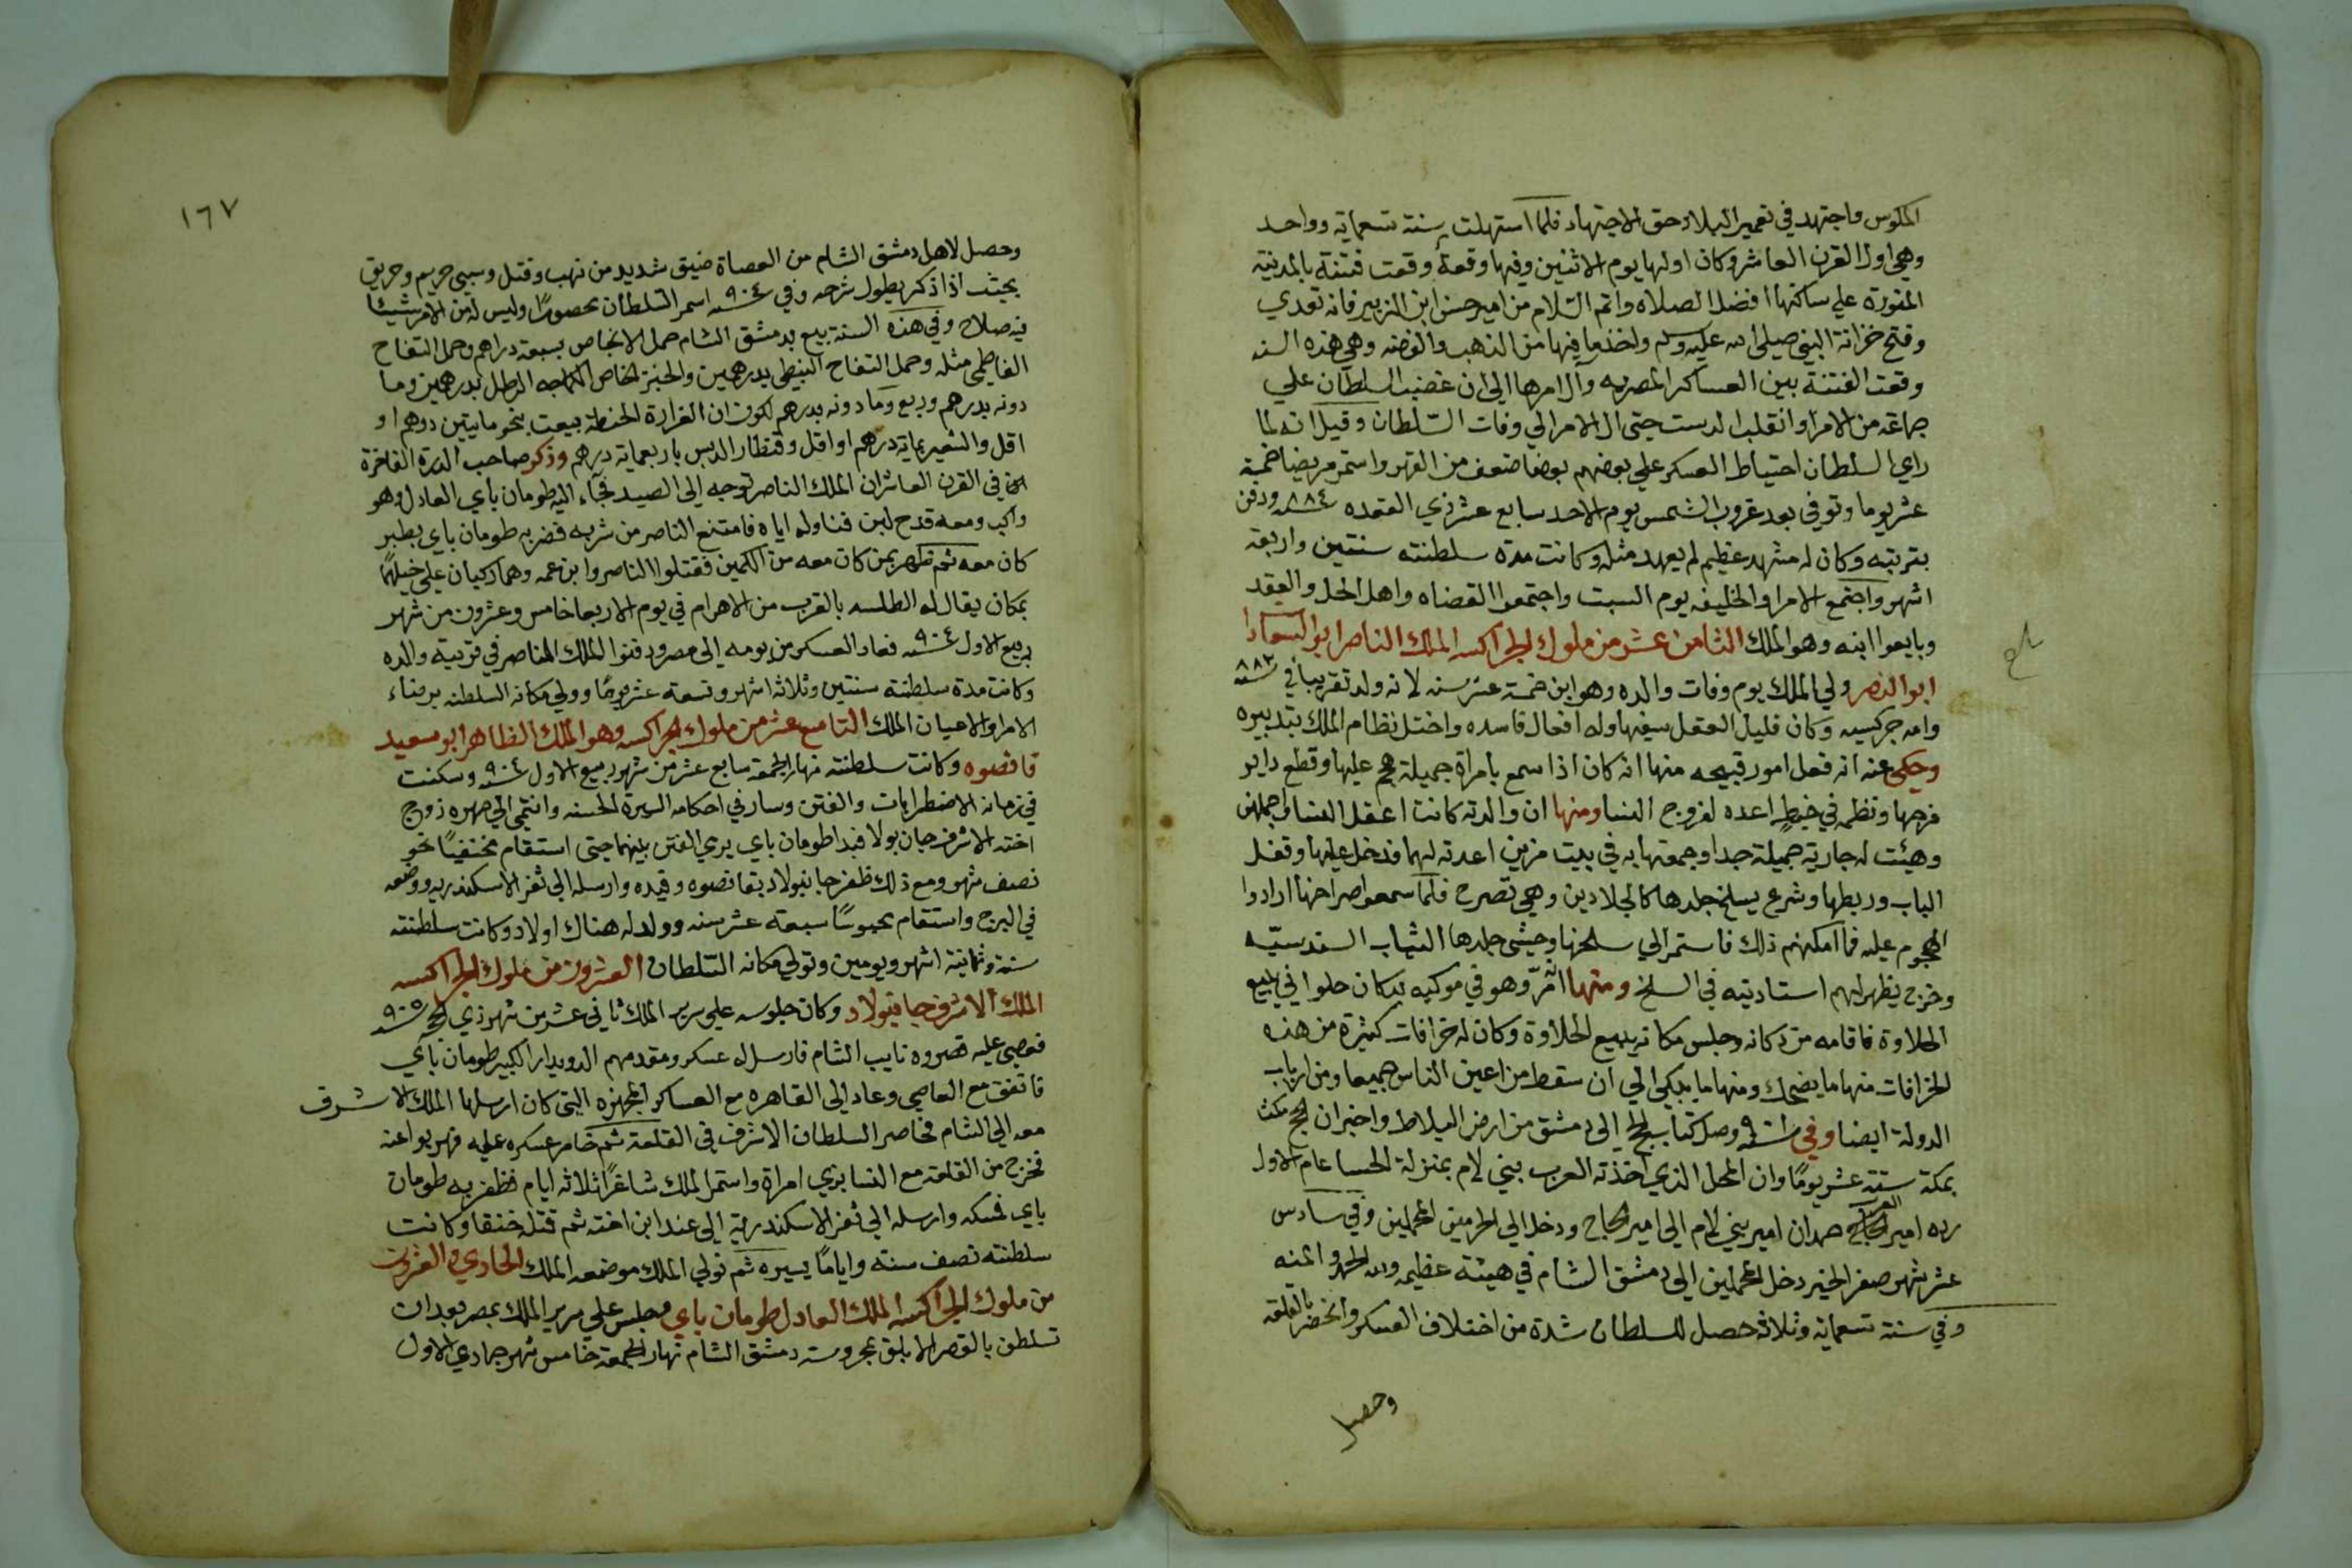 الملوس واجتهد في تعمير البلاد حق الاجتهاد فلما استهلت سنة تسعمايه وواحد
وهي اول القرن العاشر وكان اولها يوم الاثنين وفيها وقعة وقعت فتنة بالمدينة
المنورة علي ساكنها افضل الصلاه واتم السلام من امير حسن ابن الزبير فانه تعدي
وفتح خزانة النبي صلى الله عليه وسلم واخذ ما فيها من الذهب والفضه وهي هذه السنه
وقعت الفتنة بين العساكر المصريه وآل امرها الي ان غضب السلطان علي
جماعة من الامرا وانقلب الدست حتي ال الامر الي وفات السلطان وقيل انه لما
راي السلطان احتياط العسكر علي بعضهم بعضا ضعف من القهر واستمر مريضا خمسة
عشر يوما وتوفي بعد غروب الشمس يوم الاحد سابع عشر ذي القعده سنة ٨٨٤ ودفن
بتربته وكان له مشهد عظيم لم يعهد مثله وكانت مدة سلطنته سنتين واربعة
اشهر واجتمع الامرا والخليفه يوم السبت واجتمعوا القضاه واهل الحل والعقد
وبايعوا ابنه وهو الملك الثامن عشر من ملوك الجراكسه الملك الناصر ابو السعادا
ابو النصر ولي الملك يوم وفات والده وهو ابن خمسة عشر سنه لانه ولد تقريبا في سنة ٨٨٢
وامه جركسيه وكان قليل العقل سفيها وله افعال فاسده واختل نظام الملك بتدبيره
وحكي عنه انه فعل امور قبيحه منها انه كان اذا سمع بامراة جميلة هجم عليها وقطع داير
فرجها ونظمه في خيط اعده لفروج النسا ومنها ان والدته كانت اعقل النسا واجملهن
وهيئت له جارية جميلة جدا وجمعتها به في بيت مزين اعدته لهما فدخل عليها وقفل
الباب وربطها وشرع يسلخ جلدها كالجلادين وهي تصرح فلما سمعوا صراخها ارادوا
الهجوم عليه فما امكنهم ذلك فاستمر الي سلخها وحشى جلدها الثياب السندسيه
وخرج يظهر لهم استاديته في السلخ ومنها انه مرّ وهو في موكبه بدكان حلواني يبيع
الحلاوة فاقامه من دكانه وجلس مكانه يبيع الحلاوة وكان له خرافات كثيرة من هذه
الخرافات منها ما يضحك ومنها ما يبكي الي ان سقط من اعين الناس جميعا ومن ارباب
الدولة ايضا وفي سنة وصل كتاب الحج الي دمشق من ارض البلاط واخبر ان الحج مكث
بمكة ستة عشر يومًا وان المحمل الذي اخذته العرب بني لام بمنزلة الحسا عام الاول
رده امير العرب حمدان امير بني لام الي امير الحاج ودخل الي الحرمين المحملين وفي سادس
عشر شهر صفر الخير دخل المحملين الي دمشق الشام في هيئة عظيمه ولله الحمد والمنه
وفي سنة تسعماية وثلاثه حصل للسلطان شدة من اختلاف العسكر وانحصر بالقلعه
وحصل
١٦٧
وحصل لاهل دمشق الشام من العصاة ضيق شديد من نهب وقتل وسبي حريم وحريق
بحيث اذا ذكر يطول شرحه وفي سنة ٩٠٤ استمر السلطان محصورًا وليس له من الامر شيئا
فيه صلاح وفي هذه السنة بيع بدمشق الشام حمل الانجاص بسبعة دراهم وحمل التفاح
الفاطمي مثله وحمل التفاح النبيطي بدرهمين والخبز الخاص الكماجه الرطل بدرهمين وما
دونه بدرهم وربع وما دونه بدرهم لكون ان الغرارة الحنطة بيعت بنحو مايتين درهم او
اقل والشعير بماية درهم او اقل وقنطار الدبس باربعماية درهم وذكر صاحب الدرة الفاخرة
في القرن العاشر ان الملك الناصر توجه الى الصيد فجاء اليه طومان باي العادل وهو
راكب ومعه قدح لبن فناوله اياه فامتنع الناصر من شربه فضربه طومان باي بطبر
كان معه ثم ظهر من كان معه من الكمين فقتلوا الناصر وابن عمه وهما راكبان علي خيلهما
بمكان يقال له الطلسه بالقرب من الاهرام في يوم الاربعا خامس وعشرون من شهر
ربيع الاول سنة ٩٠٤ فعاد العسكر من يومه الى مصر ودفنوا الملك الناصر في تربية والده
وكانت مدة سلطنته سنتين وثلاثه اشهر وتسعه عشر يومًا وولي مكانه السلطنه برضاء
الامرا والاعيان الملك التاسع عشر من ملوك الجراكسه وهو الملك الظاهر ابو سعيد
قانصوه وكانت سلطنته نهار الجمعة سابع عشر من شهر ربيع الاول سنة ٩٠٤ وسكنت
في زمانه الاضطرابات والفتن وسار في احكامه السيرة الحسنه وانتمي الي صهره زوج
اخته الاشرف جان بولاد فبدا طومان باي يري الفتن بينهما حتى استقام مختفيًا نحو
نصف شهر ومع ذلك ظفر جانبولاد بقانصوه وقيده وارسله الي ثغر الاسكندريه ووضعه
في البرج واستقام محبوسًا سبعة عشر سنه وولد له هناك اولاد وكانت سلطنته
سنة وثمانية اشهر ويومين وتولي مكانه السلطان العشرون من ملوك الجراكسه
الملك الاشرف جانبولاد وكان جلوسه علي سرير الملك ثاني عشر من شهر ذي الحجه سنة ٩٠٥
فعصي عليه قصروه نايب الشام فارسل له عسكر ومقدمهم الدويدار الكبير طومان باي
فاتفق مع العاصي وعاد الى القاهره مع العساكر المجهزه التي كان ارسلها الملك الاشرف
معه الي الشام فحاصر السلطان الاشرف في القلعة ثم خامر عسكره عليه فهربوا عنه
فخرج من القلعة مع النسا بزي امراة واستمر الملك شاغرًا ثلاثه ايام فظفر به طومان
باي فمسكه وارسله الي ثغر الاسكندرية الى عند ابن اخته ثم قتله خنقا وكانت
سلطنته نصف سنة وايامًا يسيره ثم تولي الملك موضعه الملك الحادي والعشرون
من ملوك الجراكسه الملك العادل طومان باي وجلس علي سرير الملك بمصر بعد ان
تسلطن بالقصر الابلق بمحروسة دمشق الشام نهار الجمعة خامس شهر جمادي الاول